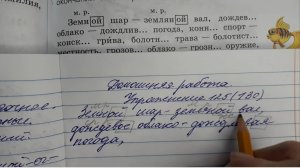 м. р.          м. р.
Земн ой шар — землян ой вал, дождев...
облако — дождлив... погода, конн... спорт —
конск... грива, болотн... трава — болотист...
местность, грозов... облако — грозн... оружие,
Домашняя работа
Упражнение 125 (780)
Земной шар - земляной вал,
дождевое облако - дождливая
погода,